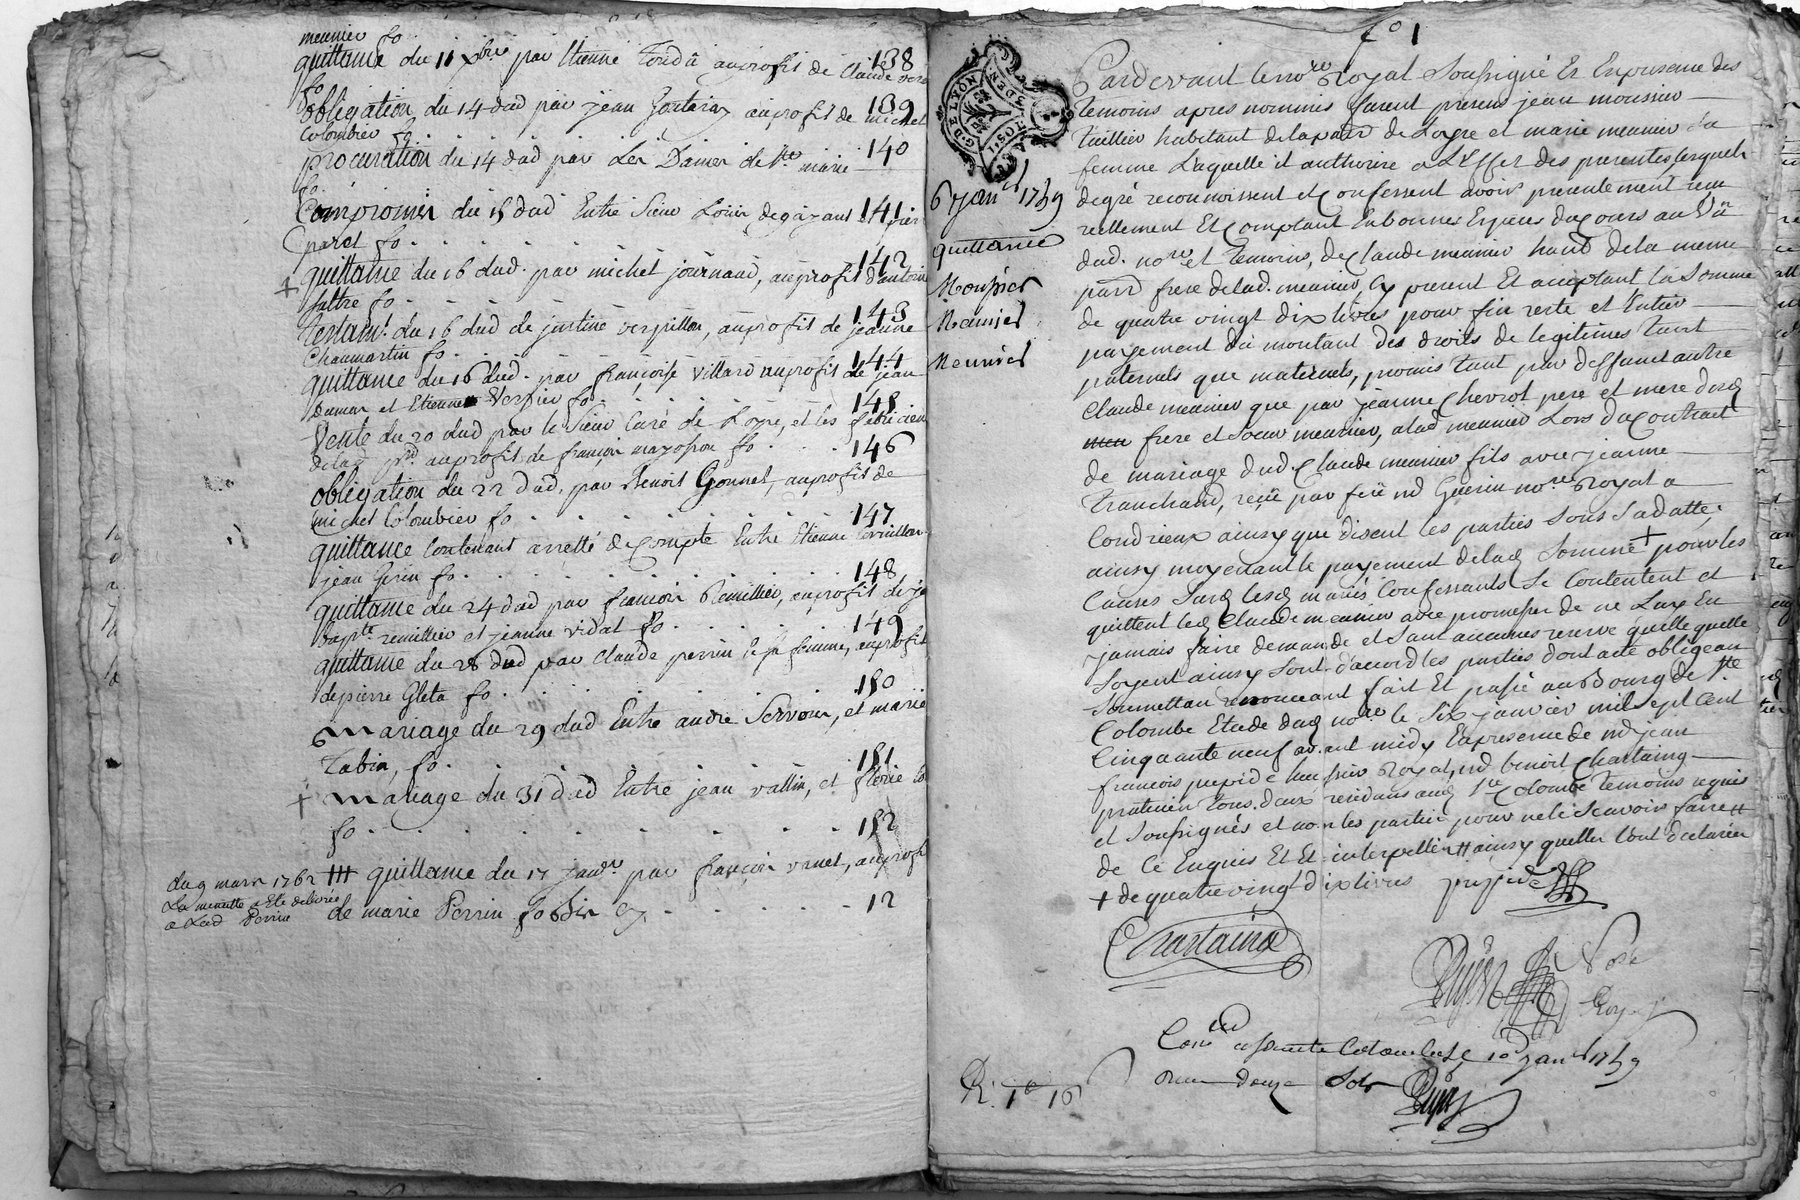 meunier fo
quittance du 11 xbre par Etienne au profit de Claude
fo 138
obligation du 14 dud par jean au profit de michel
Colombier fo 139
procuration du 14 dud par Les Dames de Ste marie
fo 140
Compromis du 15 dud Entre Sieur Louis
paret fo 141
+ quittance du 16 dud. par michel journaud, au profit d'antoine
faltre fo 142
testamt. du 16 dud de justine verpillon, au profit de jeanne
Chaumartin fo 143
quittance du 16 dud. par françoise Villard au profit de jean
dumas et Etienne Verpier fo 144
Vente du 20 dud par le Sieur Curé de Loyre, et les fabriciens
de lad prd au profit de françois mazoyon fo 145
obligation du 22 dud, par Benoit Gonnet, au profit de
michel Colombier fo 146
quittance Contenant arretté de Compte Entre Etienne
jean Girin fo 147
quittance du 24 dud par françois Remillier, au profit de
bapte remillier et jeanne vidal fo 148
quittance du 28 dud par Claude perrin et sa femme, au profit
de pierre Gleta fo 149
mariage du 29 dud Entre andre Servoin, et marie
Tabin, fo 150
+ mariage du 31 dud Entre jean vallin, et fleurie
fo 151
152
du 9 mars 1762
La minutte a Eté delivrée
a Lad Perrin
quittance du 17 janvr par françois vanet, au profit
de marie Perrin fo 12
fo 1
G. DE LYON
6 janr 1759
quittance
Mousier
Meunier
Meunier
Pardevant le nore Royal Soussigné Et En presence des
temoins apres nommés furent presens jean mousier
tuillier habitant de la parr de Loyre et marie meunier sa
femme Laquelle il authorise a L'Effet des presentes lesquels
de gré reconnoissent et Confessent avoir presentement receu
reellement Et Comptant En bonnes Especes du Cours au Vû
dud. nore et temoins, de Claude meunier habt de la meme
parr frere de lad. meunier, Cy present Et acceptant La Somme
de quatre vingt dix livres pour fin reste et Entier
payement du montant des droits de legitimes tant
paternels que maternels, promis tant par deffunt autre
Claude meunier que par jeanne Chevrot pere et mere desd
frere et Soeur meunier, a lad meunier Lors du Contract
de mariage dud. Claude meunier fils avec jeanne
Tranchand, reçu par feu md Guerin nore Royal a
Condrieux ainsy que disent les parties Sous Sa datte;
ainsy moyenant le payement de lad Somme + pour les
Causes Susd lesd mariés Confessants Se Contentent et
quittent led Claude meunier avec promesse de ne Luy En
jamais faire demande et Sans aucunes reserve quelle quelle
Soyent ainsy Sont d'accord les parties dont acte obligeant
Soumettan renonceant fait Et passé au Bourg de Ste
Colombe Etude dud nore le Six janvier mil Sept Cent
Cinquante neuf avant midy En presence de md jean
françois huissier Royal, md benoit Chartaing
praticien tous deux residans aud Ste Colombe temoins requis
et Soussignés et non les parties pour ne le Scavoir faire
de Ce Enquis Et Et interpellés ainsy quelles l'ont declarées
+ de quatre vingt dix livres
Chartaing
Nore
Royal
Conlé a Sainte Colombe le 10 janr 1759
recu douze Sols
R. 1o 16s